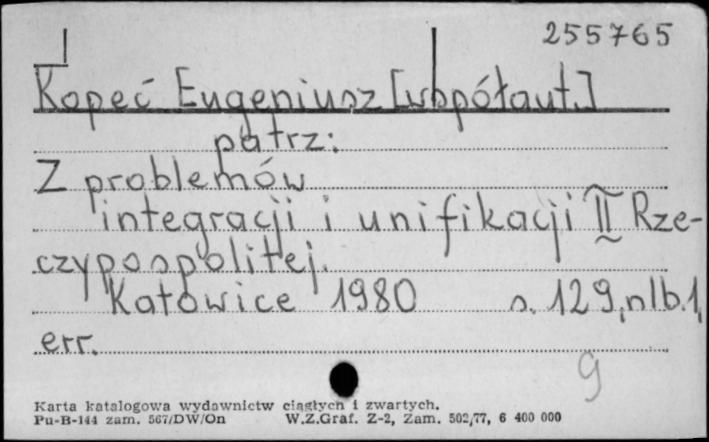 255765
Kopeć Eugeniusz [współaut.]
patrz:
Z problemów
integracji i unifikacji II Rze-
czypospolitej.
Katowice 1980 s. 129, nlb. 1,
err.
9
Karta katalogowa wydawnictw ciągłych i zwartych.
Pu-B-144 zam. 567/DW/On W.Z.Graf. Z-2, Zam. 502/77, 6 400 000